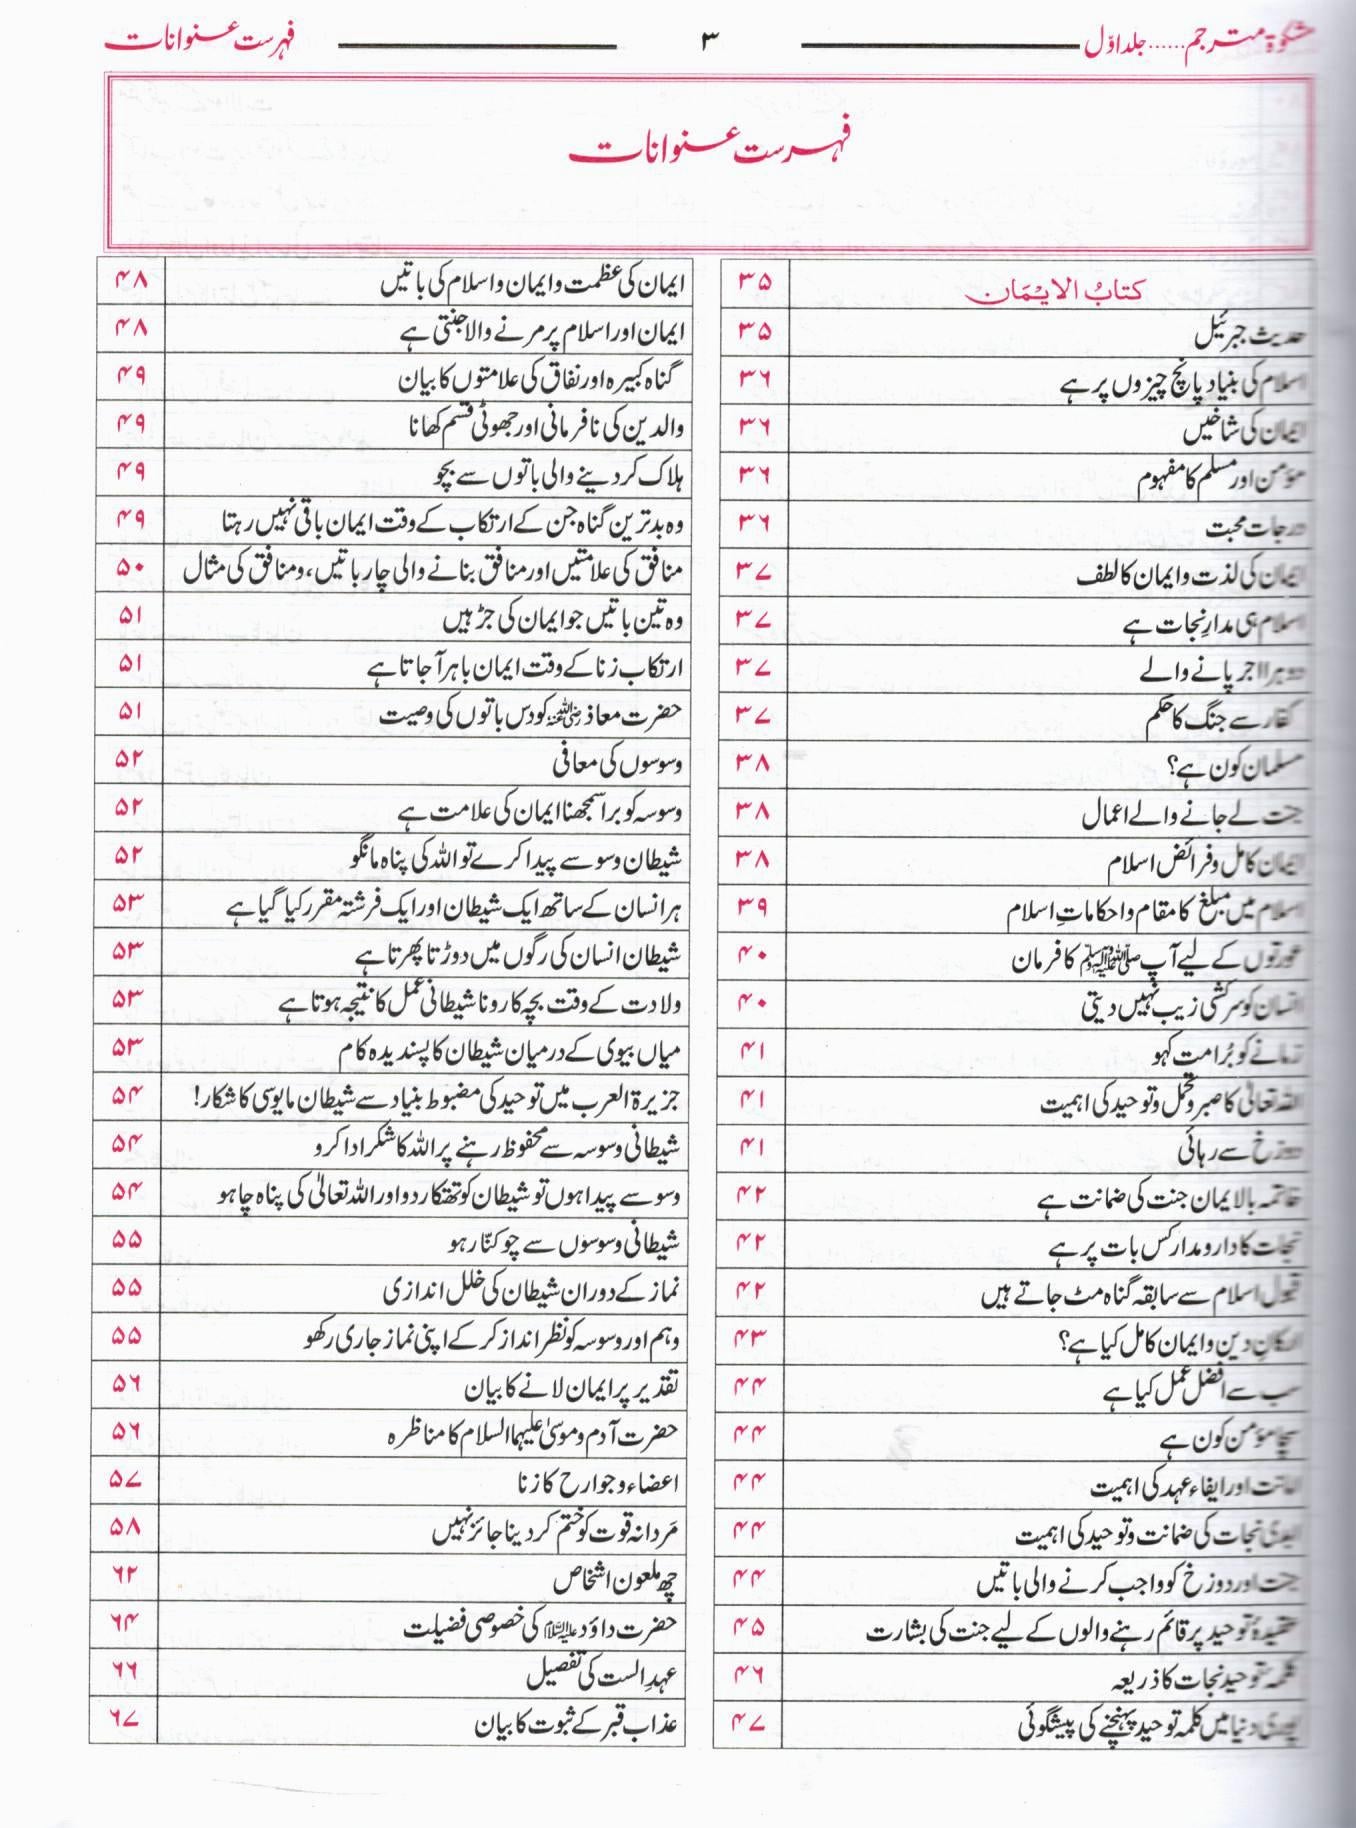 مشکوٰۃ مترجم......جلد اوّل ۳ فہرست عنوانات
فہرست عنوانات
کتابُ الایْمَان ۳۵
حدیث جبرئیل ۳۵
اسلام کی بنیاد پانچ چیزوں پر ہے ۳۶
ایمان کی شاخیں ۳۶
مؤمن اور مسلم کا مفہوم ۳۶
درجات محبت ۳۶
ایمان کی لذت و ایمان کا لطف ۳۷
اسلام ہی مدارِ نجات ہے ۳۷
دوہرا اجر پانے والے ۳۷
کفار سے جنگ کا حکم ۳۷
مسلمان کون ہے؟ ۳۸
جنت لے جانے والے اعمال ۳۸
ایمان کامل و فرائض اسلام ۳۸
اسلام میں مبلغ کا مقام و احکاماتِ اسلام ۳۹
عورتوں کے لیے آپ ﷺ کا فرمان ۴۰
انسان کو سرکشی زیب نہیں دیتی ۴۰
زمانے کو بُرا مت کہو ۴۱
اللہ تعالیٰ کا صبر و تحمل و توحید کی اہمیت ۴۱
دوزخ سے رہائی ۴۱
خاتمہ بالایمان جنت کی ضمانت ہے ۴۲
نجات کا دارومدار کس بات پر ہے ۴۲
قبول اسلام سے سابقہ گناہ مٹ جاتے ہیں ۴۲
ارکانِ دین و ایمان کامل کیا ہے؟ ۴۳
سب سے افضل عمل کیا ہے ۴۴
سچا مؤمن کون ہے ۴۴
امانت اور ایفاء عہد کی اہمیت ۴۴
ابدی نجات کی ضمانت و توحید کی اہمیت ۴۴
جنت اور دوزخ کو واجب کرنے والی باتیں ۴۴
عقیدۂ توحید پر قائم رہنے والوں کے لیے جنت کی بشارت ۴۵
کلمۂ توحید نجات کا ذریعہ ۴۶
پوری دنیا میں کلمہ توحید پہنچنے کی پیشگوئی ۴۷
ایمان کی عظمت و ایمان و اسلام کی باتیں ۴۸
ایمان اور اسلام پر مرنے والا جنتی ہے ۴۸
گناہ کبیرہ اور نفاق کی علامتوں کا بیان ۴۹
والدین کی نافرمانی اور جھوٹی قسم کھانا ۴۹
ہلاک کر دینے والی باتوں سے بچو ۴۹
وہ بدترین گناہ جن کے ارتکاب کے وقت ایمان باقی نہیں رہتا ۴۹
منافق کی علامتیں اور منافق بنانے والی چار باتیں، و منافق کی مثال ۵۰
وہ تین باتیں جو ایمان کی جڑ ہیں ۵۱
ارتکاب زنا کے وقت ایمان باہر آ جاتا ہے ۵۱
حضرت معاذ رضی اللہ عنہ کو دس باتوں کی وصیت ۵۱
وسوسوں کی معافی ۵۲
وسوسہ کو برا سمجھنا ایمان کی علامت ہے ۵۲
شیطان وسوسے پیدا کرے تو اللہ کی پناہ مانگو ۵۲
ہر انسان کے ساتھ ایک شیطان اور ایک فرشتہ مقرر کیا گیا ہے ۵۳
شیطان انسان کی رگوں میں دوڑتا پھرتا ہے ۵۳
ولادت کے وقت بچہ کا رونا شیطانی عمل کا نتیجہ ہوتا ہے ۵۳
میاں بیوی کے درمیان شیطان کا پسندیدہ کام ۵۳
جزیرۃ العرب میں توحید کی مضبوط بنیاد سے شیطان مایوسی کا شکار! ۵۴
شیطانی وسوسہ سے محفوظ رہنے پر اللہ کا شکر ادا کرو ۵۴
وسوسے پیدا ہوں تو شیطان کو تھتکار دو اور اللہ تعالیٰ کی پناہ چاہو ۵۴
شیطانی وسوسوں سے چوکنّا رہو ۵۵
نماز کے دوران شیطان کی خلل اندازی ۵۵
وہم اور وسوسہ کو نظر انداز کر کے اپنی نماز جاری رکھو ۵۵
تقدیر پر ایمان لانے کا بیان ۵۶
حضرت آدم و موسیٰ علیہما السلام کا مناظرہ ۵۶
اعضاء و جوارح کا زنا ۵۷
مَردانہ قوت کو ختم کر دینا جائز نہیں ۵۸
چھ ملعون اشخاص ۶۲
حضرت داؤد علیہ السلام کی خصوصی فضیلت ۶۴
عہدِ الست کی تفصیل ۶۶
عذاب قبر کے ثبوت کا بیان ۶۷